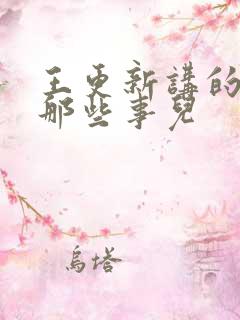 王更新講的
那些事兒
烏塔